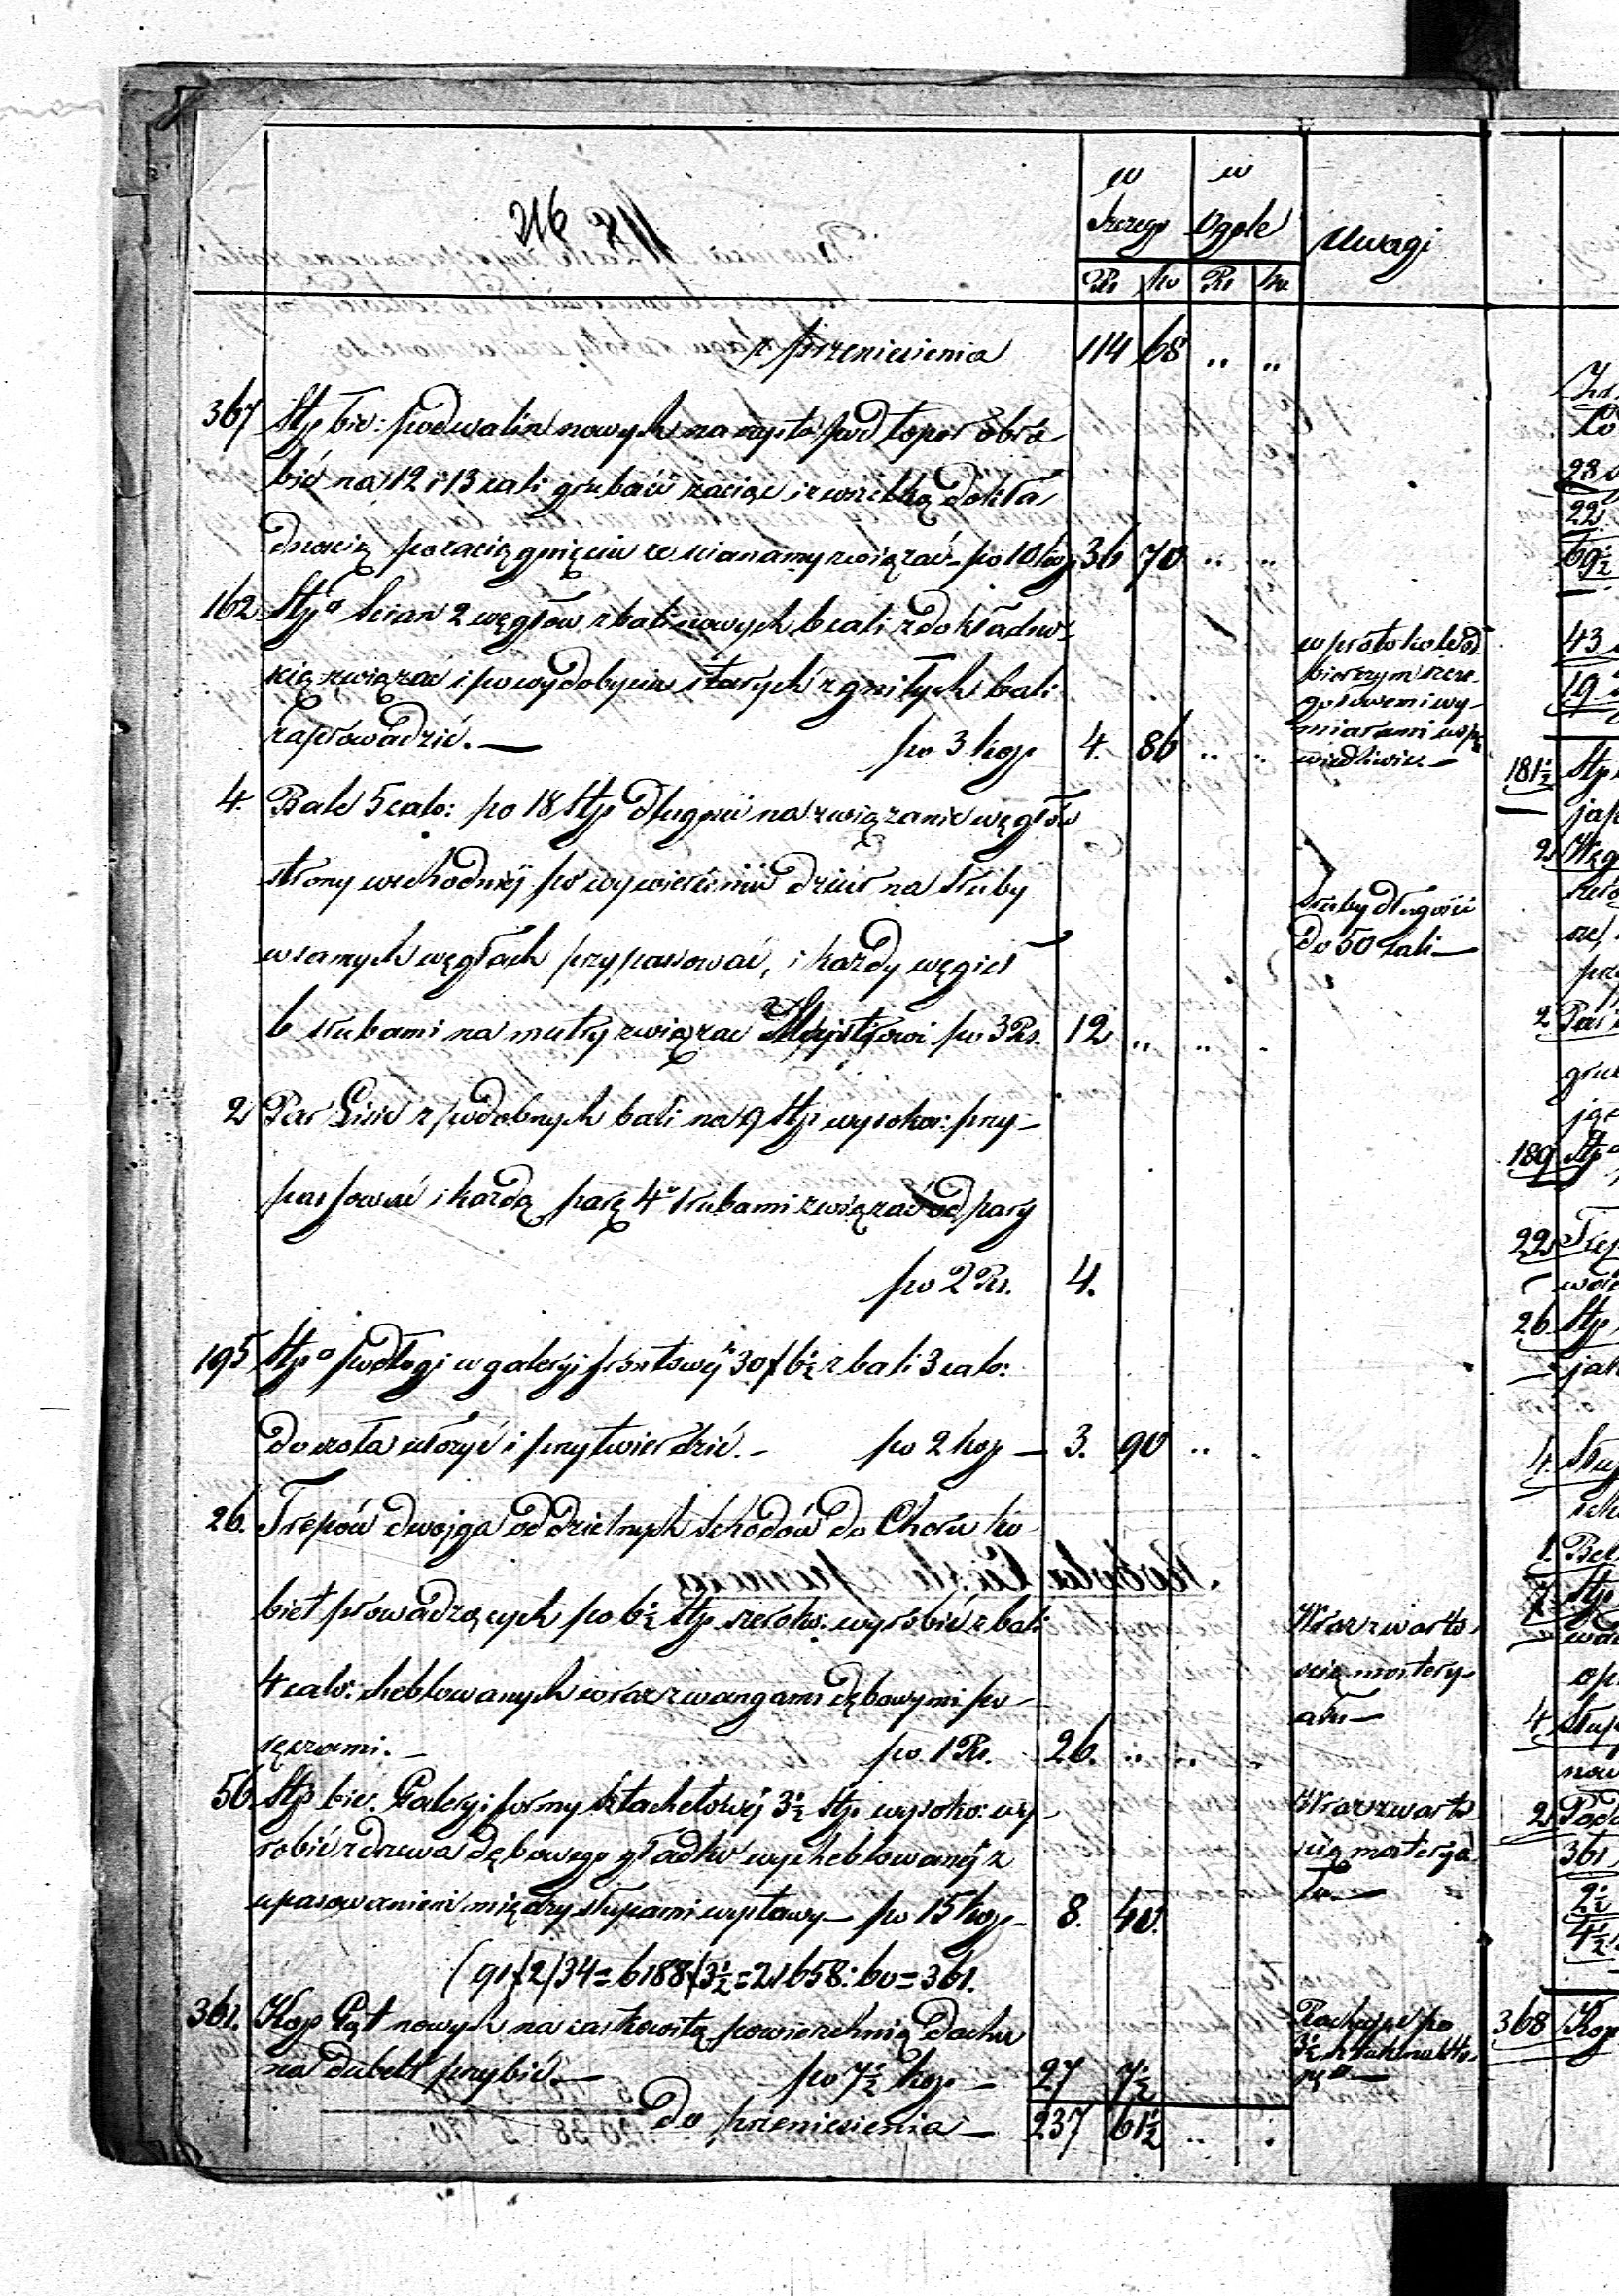 216
w Szczeg w Ogole Uwagi
Rs ko Rs ko
z przeniesienia 114 68 " "
367 Stp bie: podwalin nowych na czysto pod topor obro
bić na 12 i 13 cali grubości zaciąć i z wszelką dokła
dnością po zaciągnięciu ze scianamy związać po 10 kop 36 70 " "
162 Stp□ Scian 2 węgłów z bali nowych 6 cali z dokładno
scią związać i po wydobyciu starych zgniłych bali
zaprowadzić. — po 3 kop 4. 86 " "
w protokole od
bierczym szcze
gołowemi wy-
miarami uspra
wiedliwić —
4. Bale 5 calo: po 18 Stp długości na związanie węgłów
strony wschodniej po wywierceniu dziur na śruby
w samych węgłach przypasować, i każdy węgieł
6 śrubami na mutry związac Majstrowi po 3 Rs. 12 " " "
śruby długości
do 50 cali —
2 Par Lisic z podobnych bali na 9 Stp wysoko: przy-
passować i każdą parę 4 śrubami związać od pary
po 2 Rs. 4.
195 Stp□ podłogi w galeryi frontowej 30/6½ z bali 3 calo:
do czoła ułożyć i przytwierdzić. — po 2 kop — 3. 90 " "
26. Trepów dwojga oddzielnych schodów do Choru ko
biet prowadzących po 6½ Stp szeroko: wyrobić z bali
4 calo: heblowanych wraz z wangami dębowymi po-
ręczami. — po 1 Rs. 26. " " "
Wraz z warto
scią matery-
ału —
56 Stp bie. Galeryi formy sztachetowej 3½ Stp. wysoko: wy-
robić z drzewa dębowego gładko wycheblowanej z
upasowaniem między słupami wystawy — po 15 kop — 8. 40.
Wraz z warto
scią materya
łu —
(91/2/34=6188/3½=21658:60=361.
361. Kop Gąt nowych na całkowitą powierzchnią dachu
na dubelt przybić. — po 7½ kop — 27 7½
Rachując po
3½ sztuk na sto
pę□ —
Do przeniesienia — 237 61½ " "
23
22
69½
43
19
181½ Stp
2
2
189 Stp
22
26 Stp
4.
1.
7 Stp
4
2
361
2½
4½
368 Kop